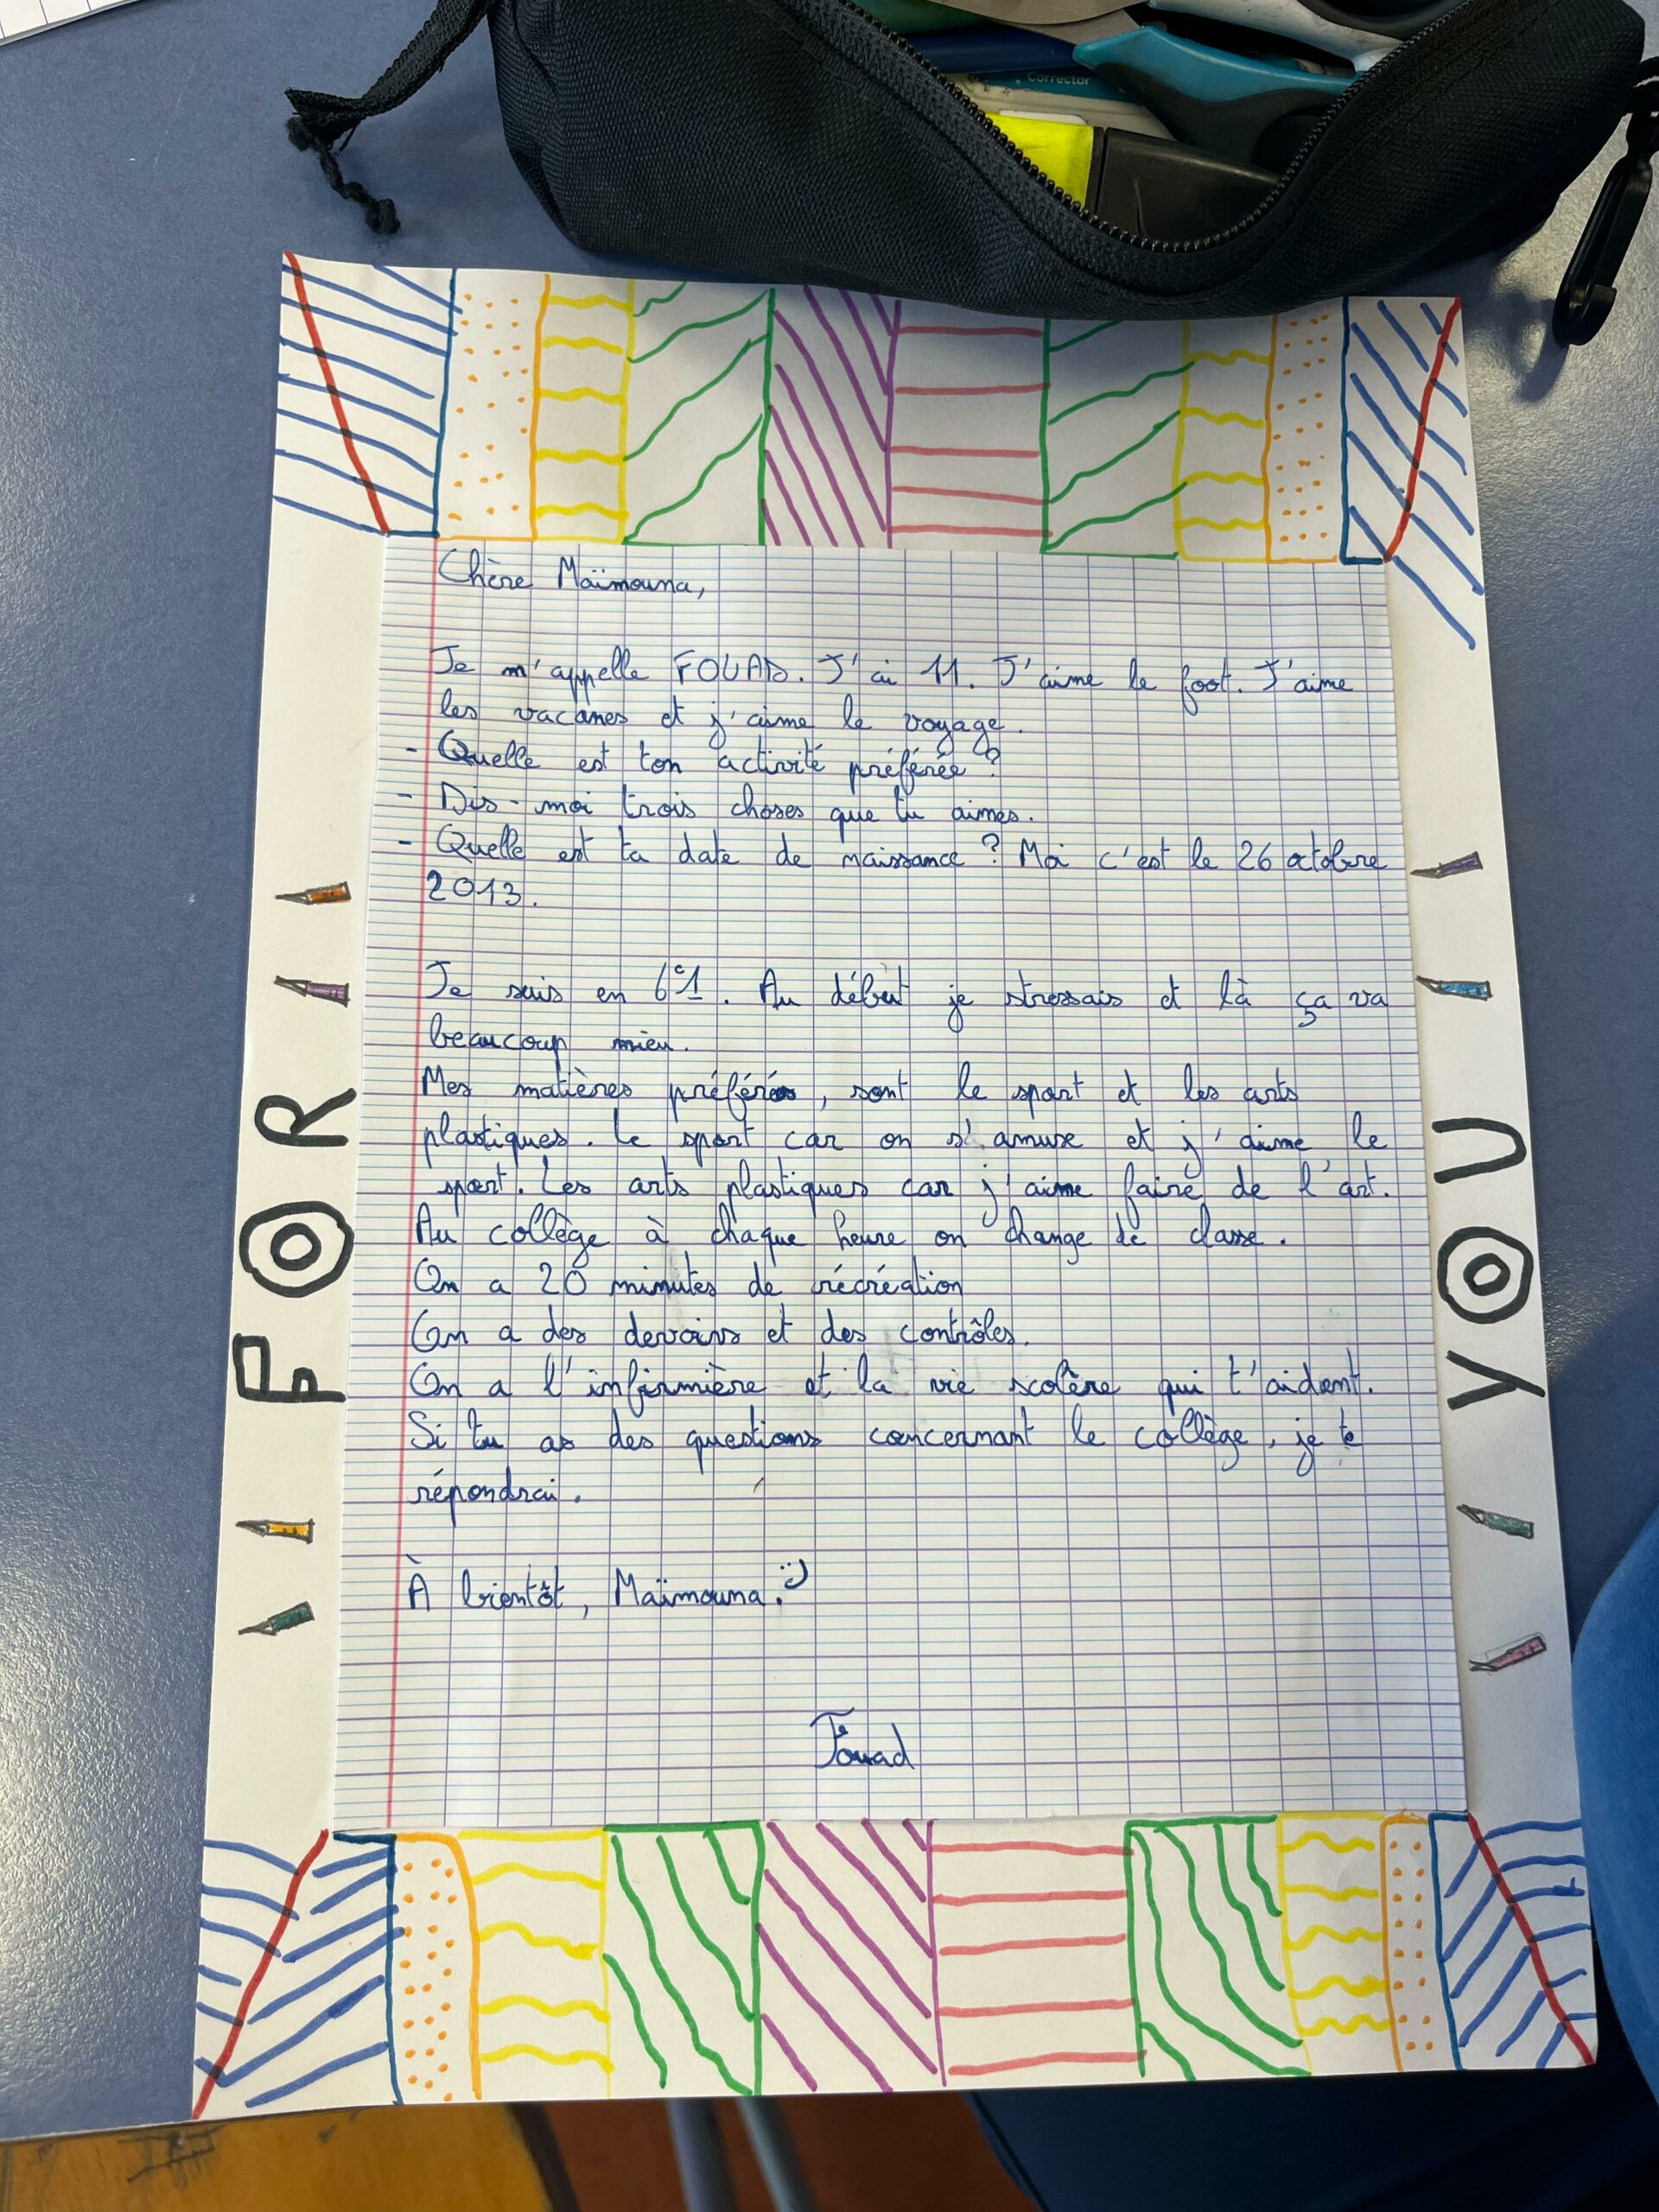 Corrector
Chère Maïmouna,
Je m'appelle FOUAD. J'ai 11. J'aime le foot. J'aime
les vacanes et j'aime le voyage.
- Quelle est ton activité préférée ?
- Dis-moi trois choses que tu aimes.
- Quelle est ta date de naissance ? Moi c'est le 26 octobre
2013.
Je suis en 6e1. Au début je stressais et là ça va
beaucoup mieu.
Mes matières préférés, sont le sport et les arts
plastiques. Le sport car on s'amuse et j'aime le
sport. Les arts plastiques car j'aime faire de l'art.
Au collège à chaque heure on change de classe.
On a 20 minutes de récréation
On a des devoirs et des contrôles.
On a l'infirmière et la vie scolère qui t'aident.
Si tu as des questions concernant le collège, je te
répondrai.
À bientôt, Maïmouna. :)
Fouad
FOR
YOU